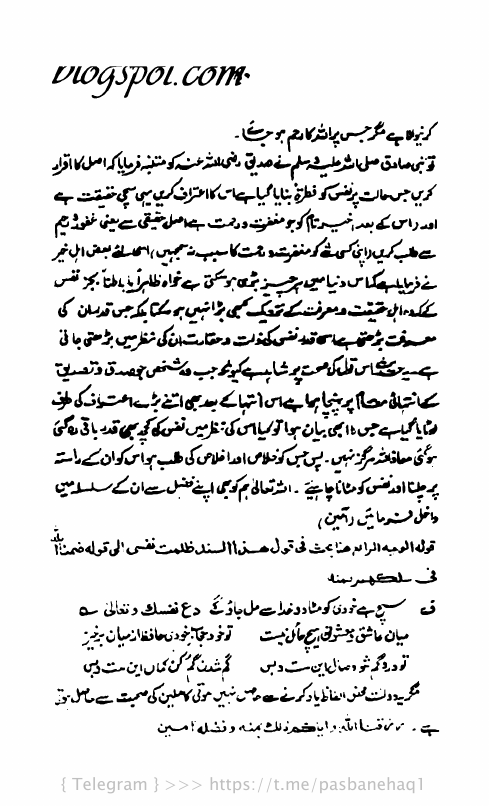 blogspot.com
کرنیوالا ہے مگر جس پر اللہ کا رحم ہو جائے۔
تو نبی صادق صلی اللہ علیہ وسلم نے صدیق رضی اللہ عنہ کو متنبہ فرمایا کہ اصل کا اقرار
کریں جس حالت پر نفس کو فطرۃ بنایا گیا ہے اس کا اعتراف کریں یہی سچی حقیقت ہے
اور اس کے بعد اخیر تام کو جو مغفرت و رحمت ہے اصل حقیقی سے یعنی غفور رحیم
سے طلب کریں اپنی کسی شے کو مغفرت و رحمت کا سبب نہ سمجھیں اسی لئے بعض اہل خیر
نے فرمایا ہے کہ اس دنیا میں ہر چیز بڑی ہو سکتی ہے خواہ ظاہراً یا باطناً بجز نفس
کے کہ وہ اہل حقیقت و معرفت کے نزدیک کبھی بڑا نہیں ہو سکتا بلکہ جس قدر ان کی
معرفت بڑھتی ہے اسی قدر نفس کی ذلت و حقارت ان کی نظر میں بڑھتی جاتی
ہے اس قول کی صحت پر شاہد ہے کیونکہ جب وہ شخص جو صدق و تصدیق
کے انتہائی مقام پر پہنچا ہوا ہے اس انتہا کے بعد بھی اتنے بڑے اعتراف کی طرف
لایا گیا ہے جس کا ابھی بیان ہوا تو کیا اس کی نظر میں نفس کی کچھ بھی قدر باقی رہ گئی
ہوگی معاذ اللہ ہرگز نہیں۔ پس جس کو خلاص اور اخلاص کی طلب ہو اس کو ان کے راستہ
پر چلنا اور نفس کو مٹانا چاہیئے۔ اللہ تعالیٰ ہم کو بھی اپنے فضل سے ان کے سلسلہ میں
داخل فرمائیں (آمین)
قولہ الوجہ الرابع ھنا بحث فی قول ھذا السند ظلمت نفسی الی قولہ ضمنا اللہ
فی سلکھم بمنہ
ف سچ ہے خودی کو مٹا دو خدا سے مل جاؤ گے دع نفسک و تعالیٰ ہے
میان عاشق و معشوق ہیچ حائل نیست تو خود حجاب خودی حافظ از میان برخیز
تو درو گم شو وصال این ست و بس گم شدن گم کن کمال این ست و بس
مگر یہ دولت محض الفاظ یاد کرنے سے حاصل نہیں ہوتی کاملین کی صحبت سے حاصل ہوتی
ہے۔ رزقنا اللہ وایاکم ذلک بمنہ و فضلہ آمین
{ Telegram } >>> https://t.me/pasbanehaq1